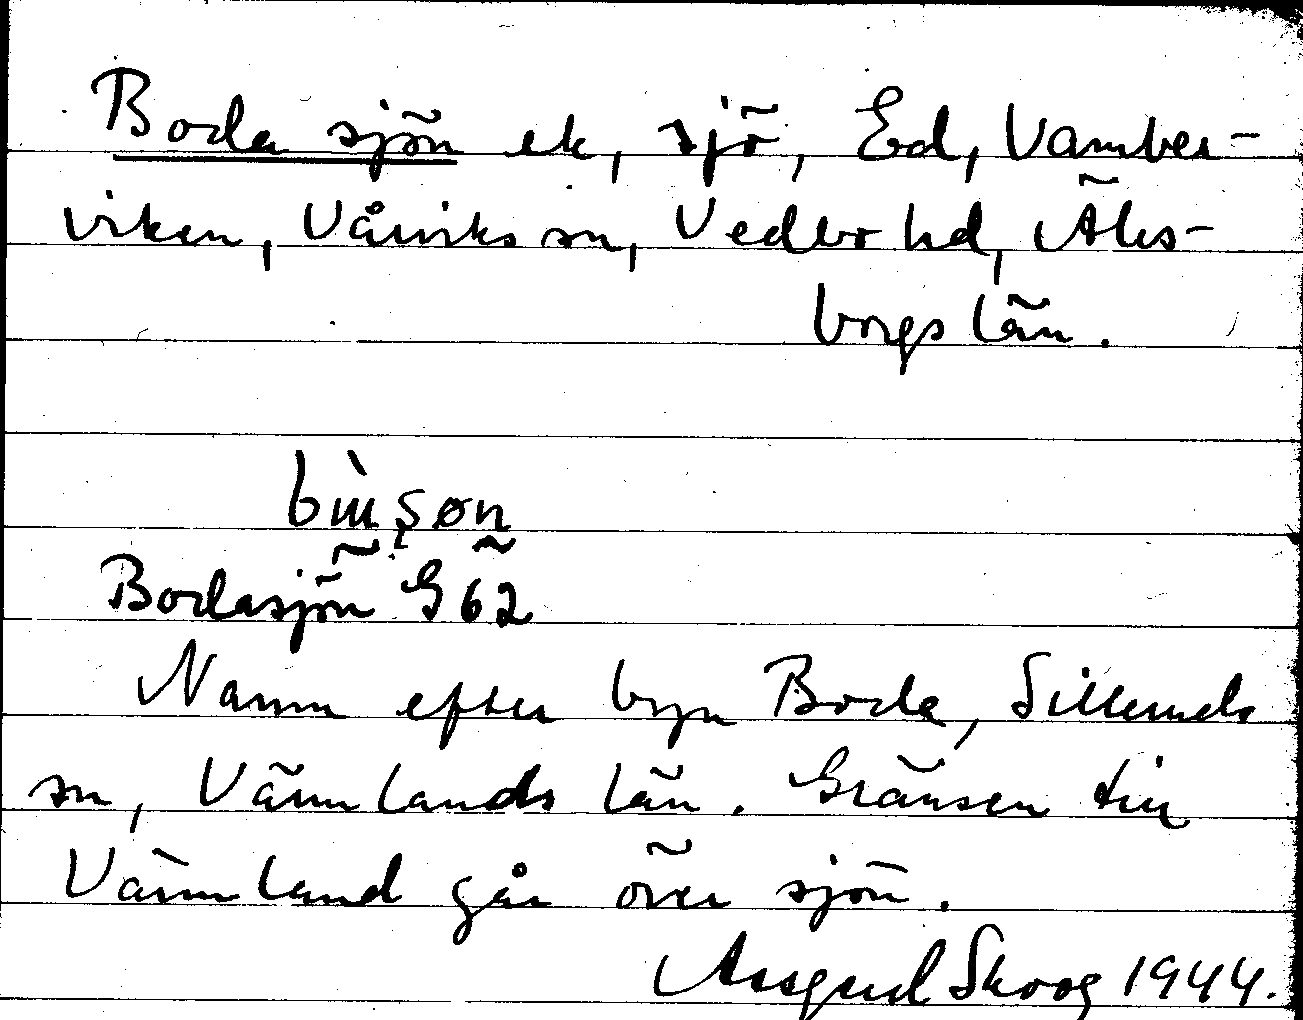 Bodasjön ek, sjö, Ed, Vamber-
viken, Vårviks sn, Vedbo hd, Älvs-
borgs län.
Bodasjön G 62
Namn efter byn Boda, Silleruds
sn, Värmlands län. Gränsen till
Värmland går över sjön.
Assgerd Skoog 1944.